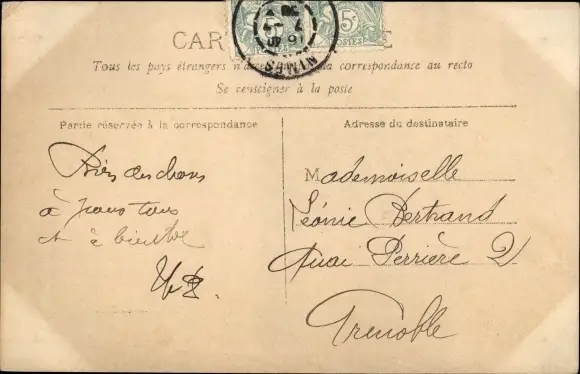 5c 5c
POSTES
NIMES
CAR E
Tous les pays étrangers n'a la correspondance au recto
Se renseigner à la poste
Partie réservée à la correspondance
Adresse du destinataire
à vous tous
et à bientôt
Mademoiselle
Léonie Bertrand
Quai Perrière 2
Grenoble